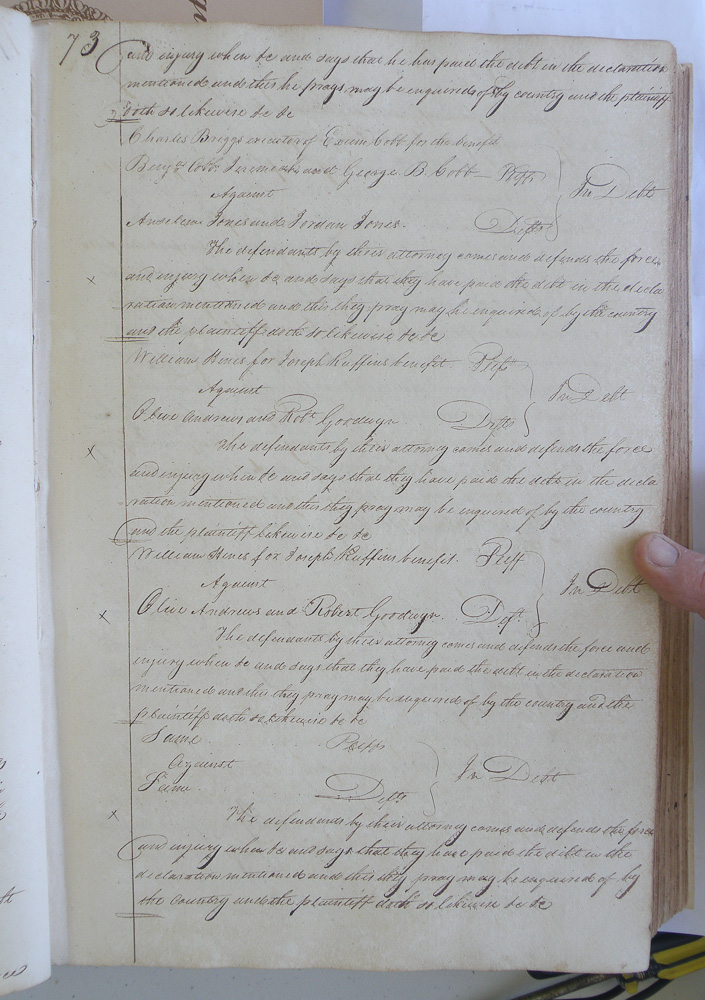 73
and injury when &c and says that he has paid the debt in the declaration
mentioned and this he prays may be enquired of by country and the plaintiff
doth so likewise &c &c
Charles Briggs executor of Exum Cobb for the benefit
Benjn Cobb and George B. Cobb Plffs
Against
In Debt
Anselem Jones and Jordan Jones. Defts
The defendants by their attorney comes and defends the force
x and injury when &c and says that they have paid the debt in the decla
ration mentioned and this they pray may be enquired of by the country
and the plaintiff doth so likewise &c &c
William Hines for Joseph Ruffins benefit. Plff
Against
In Debt
Olive Andrews and Robt Goodwyn Defts
The defendants by their attorney comes and defends the force
x
and injury when &c and says that they have paid the debt in the decla
ration mentioned and this they pray may be enquired of by the country
and the plaintiff likewise &c &c
William Hines for Joseph Ruffins benefit. Plff
Against
In Debt
x Olive Andrews and Robert Goodwyn. Deft
The defendants by their attorney comes and defends the force and
injury when &c and says that they have paid the debt in the declaration
mentioned and this they pray may be enquired of by the country and the
plaintiff doth so likewise &c &c
Same Plffs
Against
In Debt
Same. Defts
x The defendants by their attorney comes and defends the force
and injury when &c and says that they have paid the debt in the
declaration mentioned and this they pray may be enquired of by
the country and the plaintiff doth so likewise &c &c